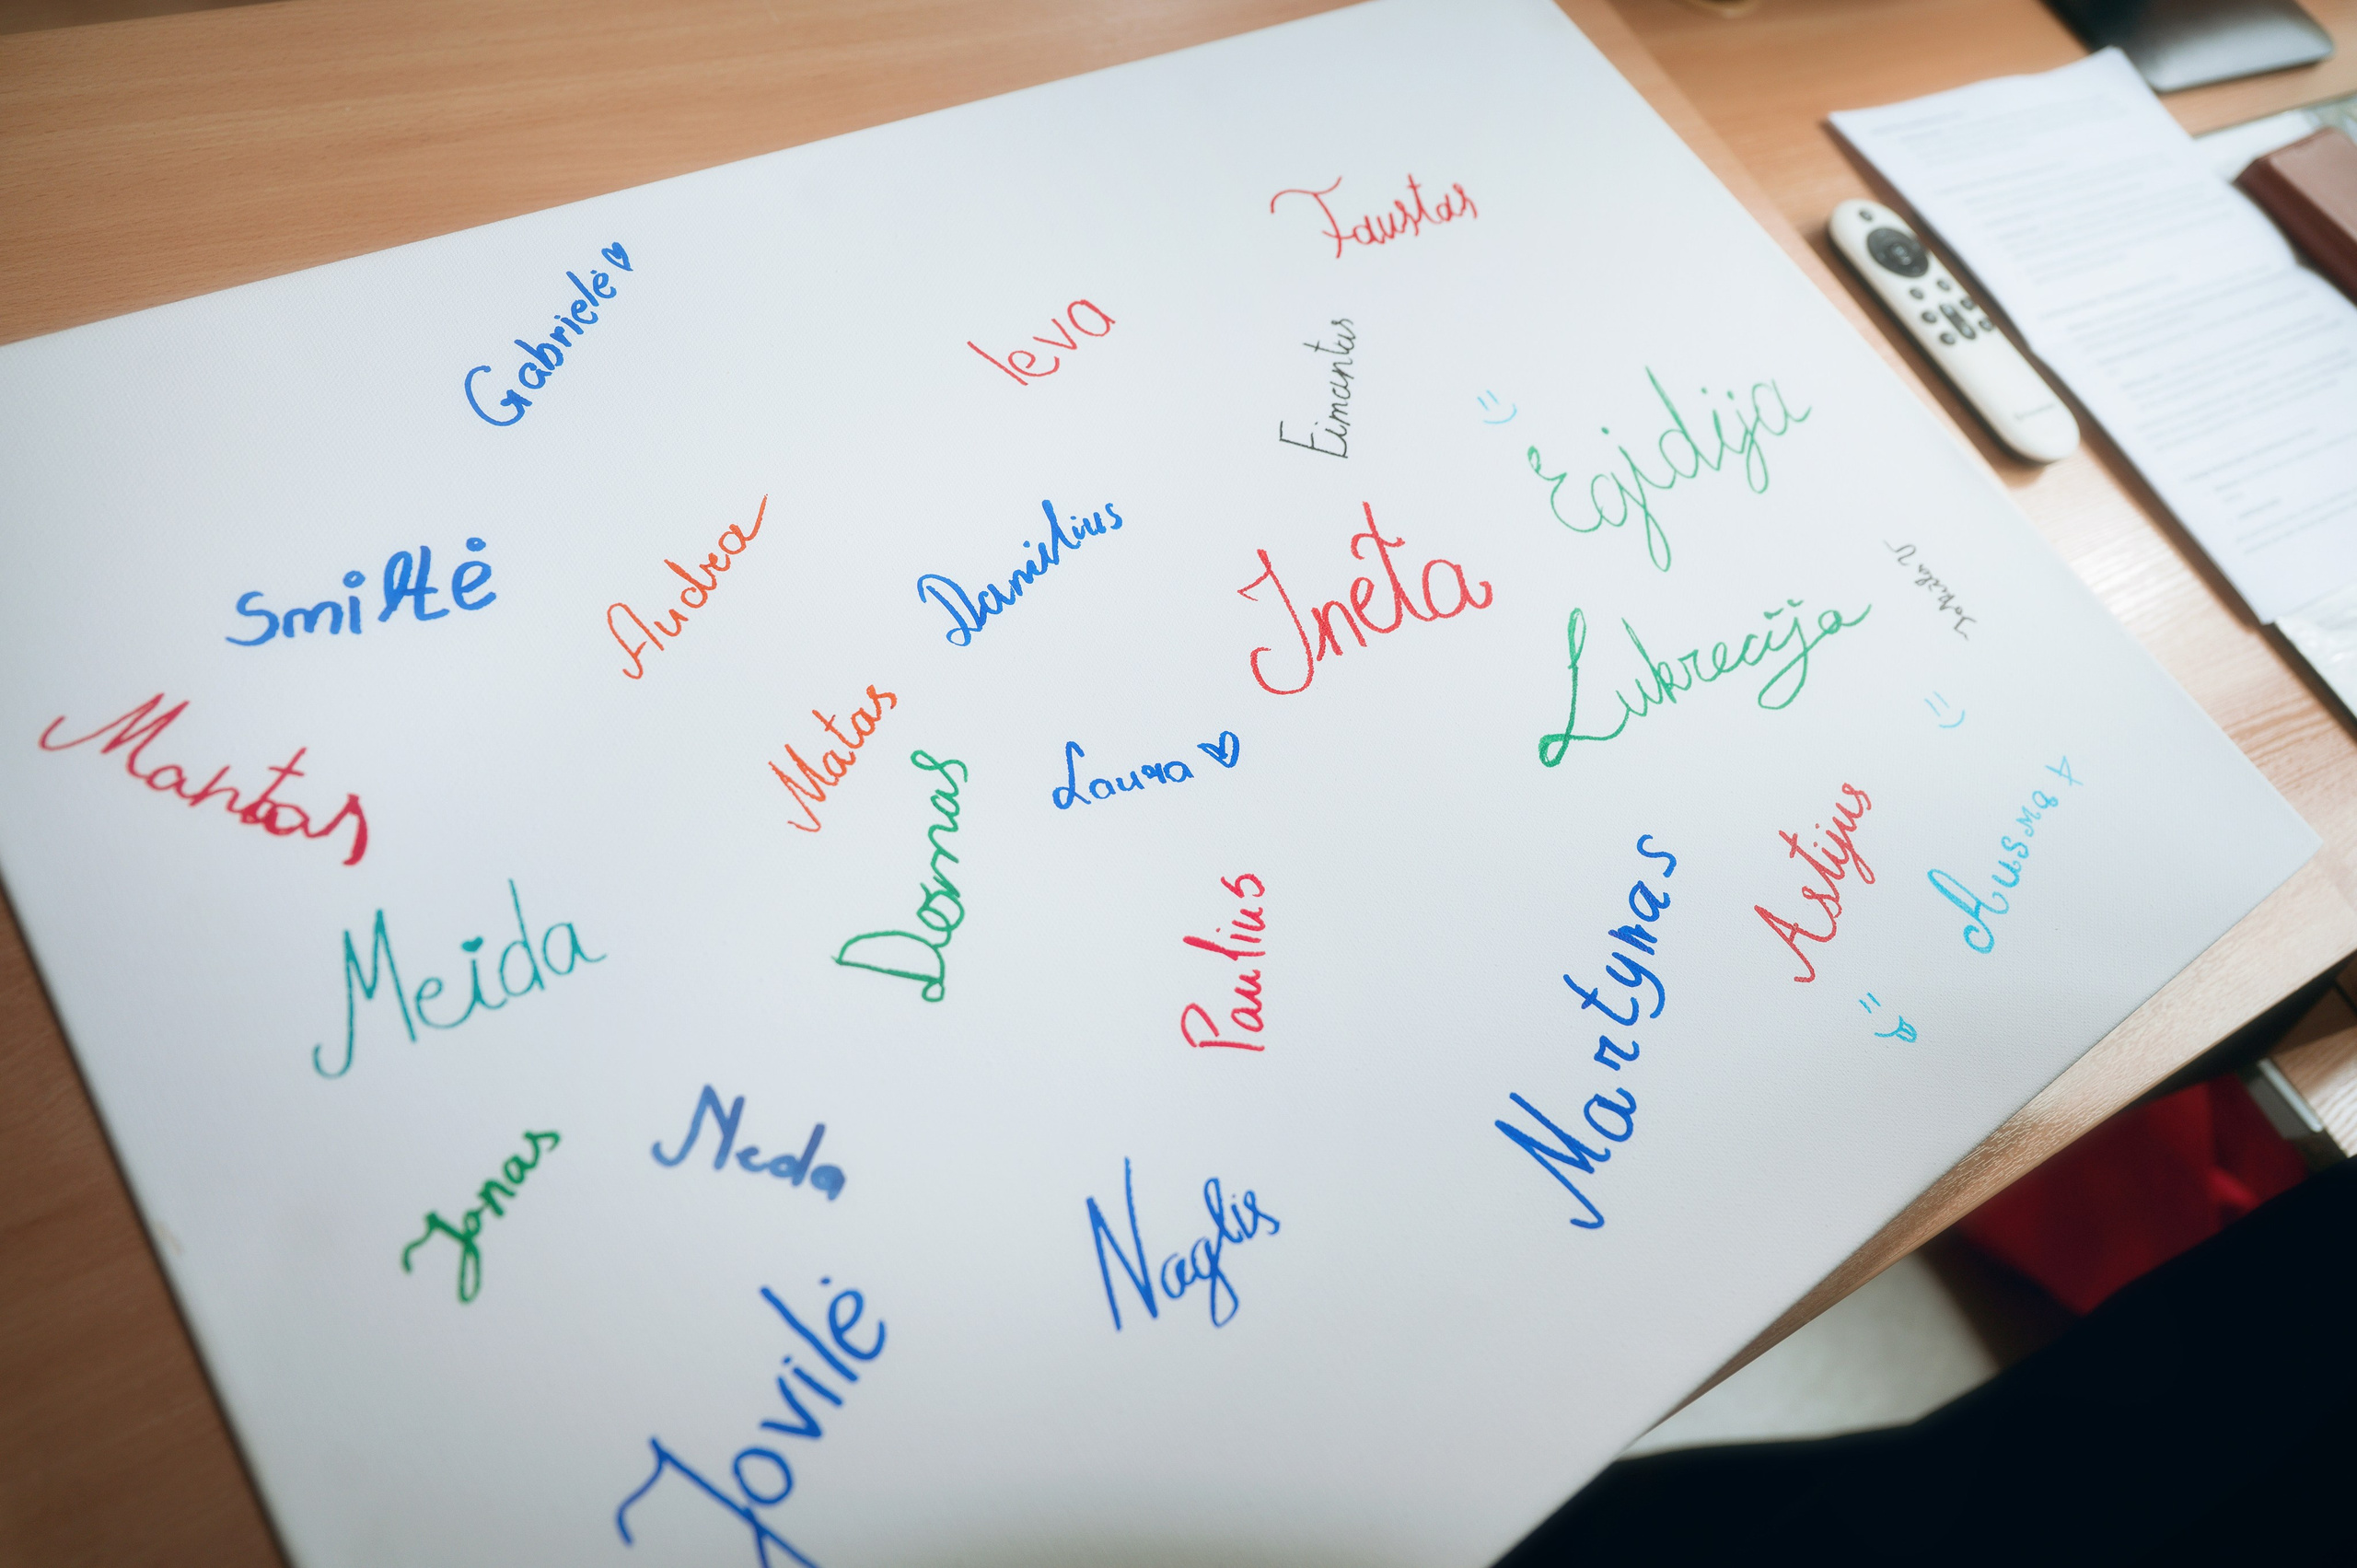 Faustas
Gabrielė
Ieva
Eimantas
Egidija
Smiltė
Audra
Danielius
Ineta
Lukrecija
Mantas
Matas
Laura
Domas
Astijus
Ausma
Martynas
Paulius
Meida
Jonas
Neda
Naglis
Jovilė